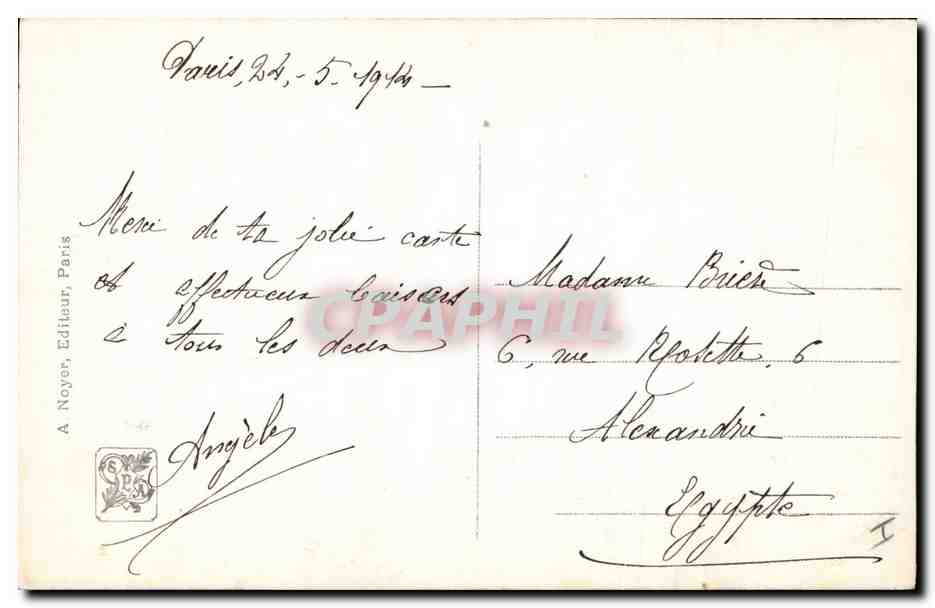 Paris, 24, - 5. 1914 -
Merci de ta jolie carte
et affectueux baisers
à tous les deux
Angèle
Madame Brière
6, rue Rosette, 6
Alexandrie
Egypte
I
A Noyer, Editeur, Paris
S P A
CPAPHIL